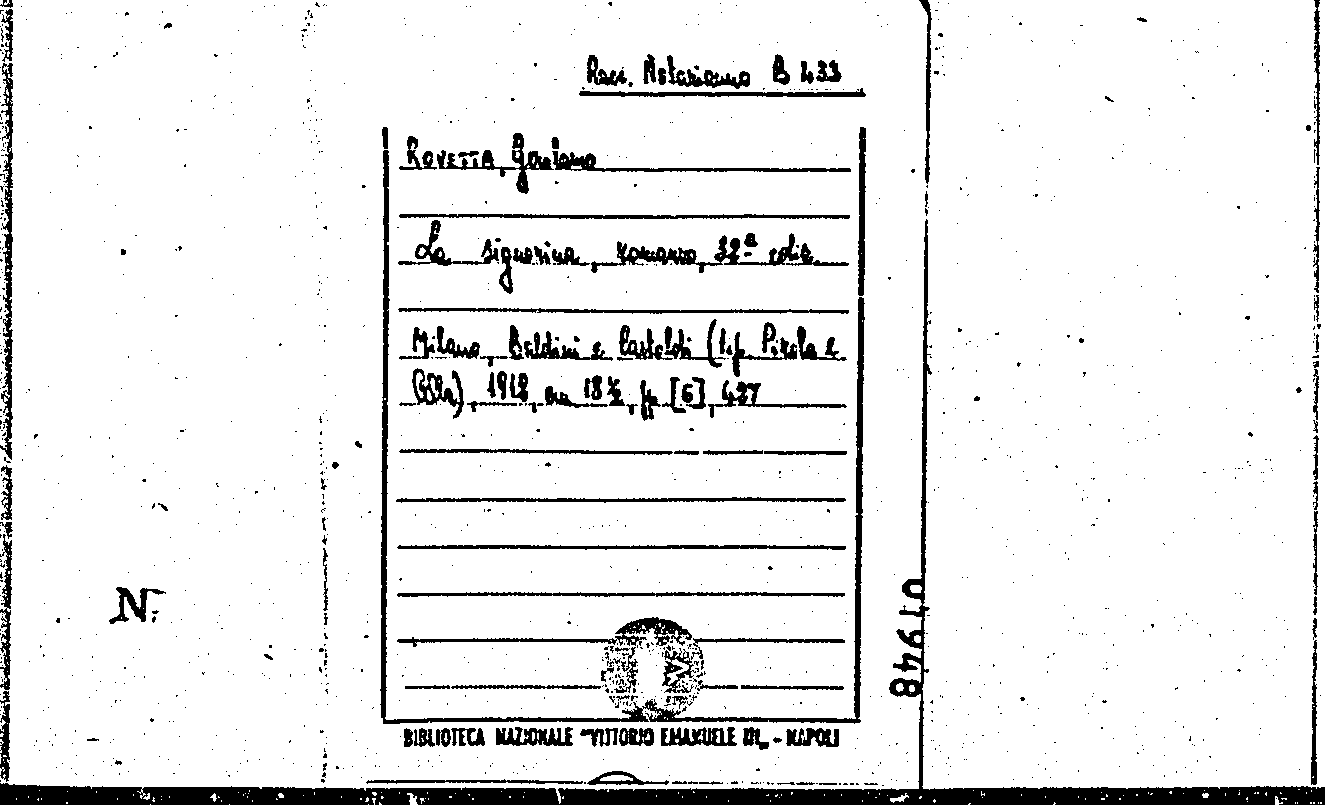 Racc. Notarianno B 433
ROVETTA, Gerolamo
La signorina, romanzo, 32ª ediz.
Milano, Baldini e Castoldi (tip. Pirola e
Cella), 1918, in 18½, pp [6], 427
N.
01948
BIBLIOTECA NAZIONALE "VITTORIO EMANUELE III„ - NAPOLI